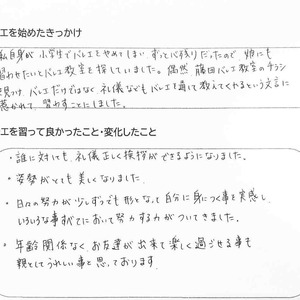 エを始めたきっかけ
私自身が小学生でバレエをやめてしまい ずっと心残りだったので 娘にも
習わせたいとバレエ教室を探していました。偶然 藤田バレエ教室のチラシ
見つけ バレエだけではなく 礼儀などもバレエを通して教えてくれるという文言に
惹かれて 習わすことにしました。
エを習って良かったこと・変化したこと
・誰に対しても、礼儀正しく挨拶ができるようになりました。
・姿勢がとても美しくなりました。
・日々の努力が少しずつでも形となって自分に身につく事を実感し
いろいろな事すべてにおいて努力する力がついてきました。
・年齢関係なく お友達が出来て楽しく過ごせる事も
親としてうれしい事と思っております